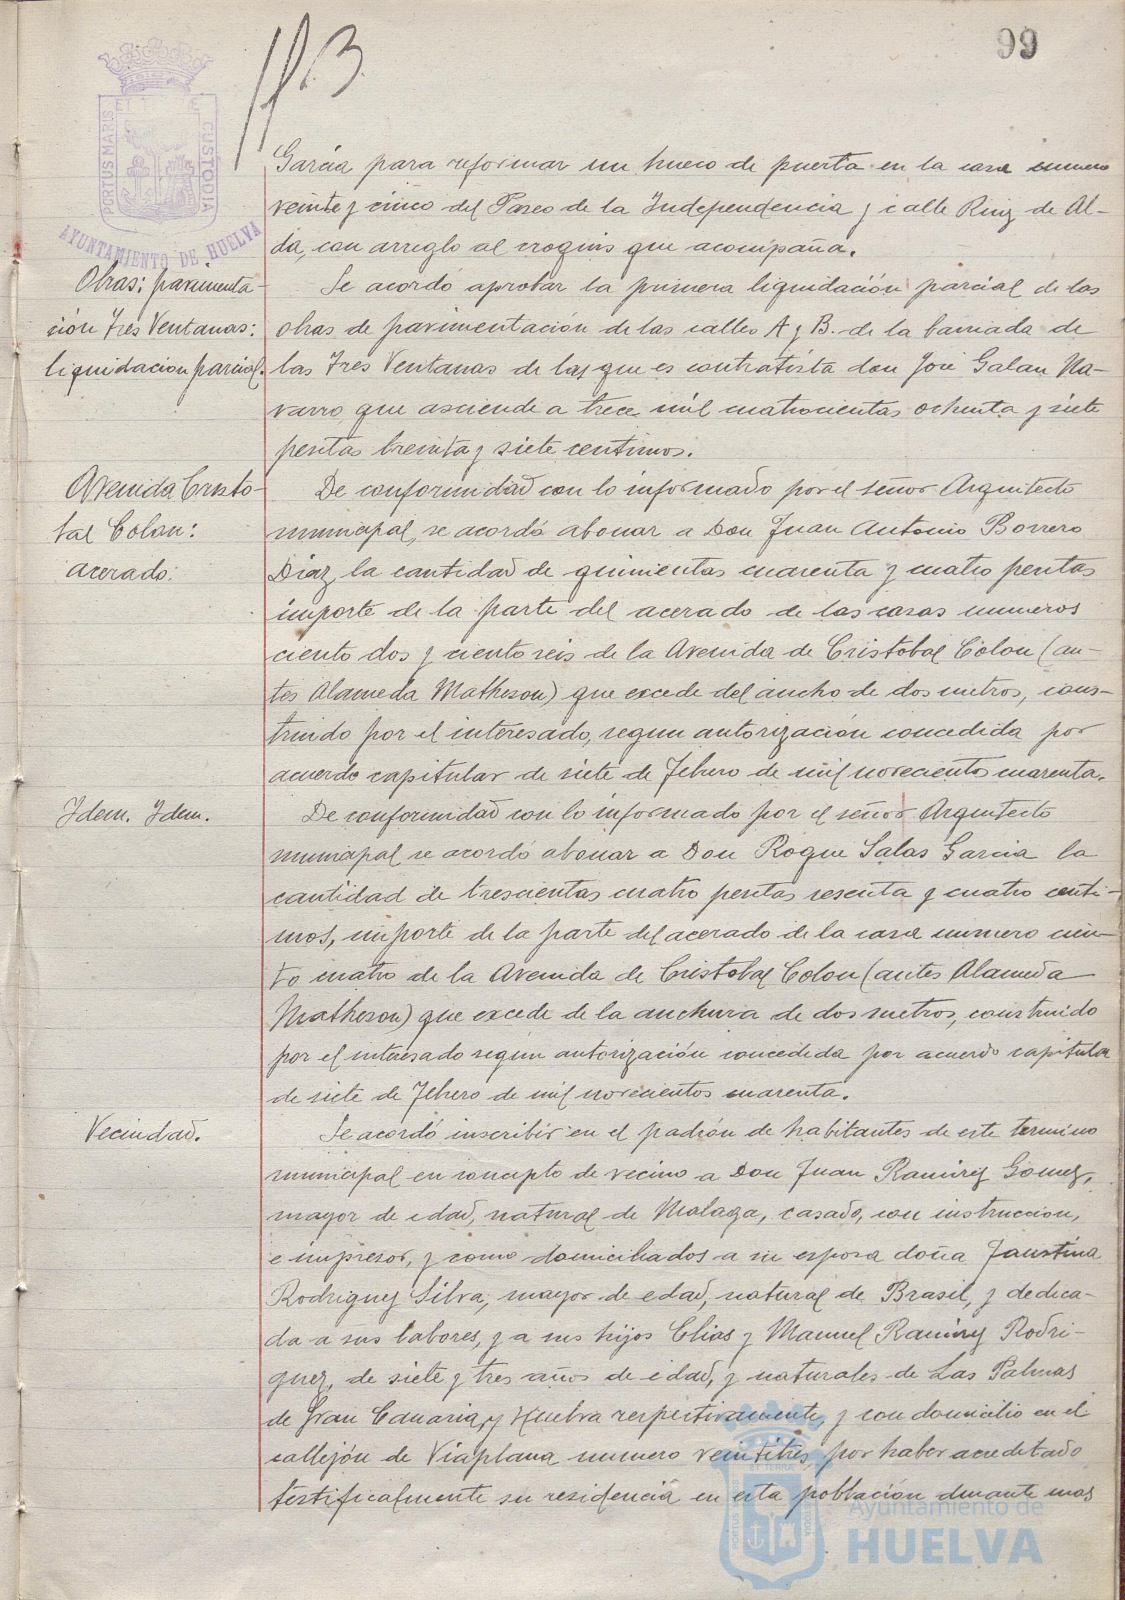 99
PORTUS MARIS ET TERRE CUSTODIA
AYUNTAMIENTO DE HUELVA
Garcia para reformar un hueco de puerta en la casa numero
veinte y cinco del Paseo de la Independencia y calle Ruiz de Al-
da, con arreglo al croquis que acompaña.
Obras: pavimenta-
ción Tres Ventanas:
liquidacion parcial.
Se acordó aprobar la primera liquidación parcial de las
obras de pavimentación de las calles A y B. de la barriada de
las Tres Ventanas de las que es contratista don José Galan Na-
varro, que asciende a trece mil cuatrocientas ochenta y siete
pesetas treinta y siete centimos.
Avenida Cristo-
bal Colon:
acerado:
De conformidad con lo informado por el señor Arquitecto
municipal, se acordó abonar a Don Juan Antonio Borrero
Diaz, la cantidad de quinientas cuarenta y cuatro pesetas
importe de la parte del acerado de las casas numeros
ciento dos y ciento seis de la Avenida de Cristobal Colon (an-
tes Alameda Matheson) que excede del ancho de dos metros, cons-
truido por el interesado, segun autorización concedida por
acuerdo capitular de siete de Febrero de mil novecientos cuarenta.
Idem. Idem.
De conformidad con lo informado por el señor Arquitecto
municipal se acordó abonar a Don Roque Salas Garcia la
cantidad de trescientas cuatro pesetas sesenta y cuatro centi-
mos, importe de la parte del acerado de la casa numero cien-
to cuatro de la Avenida de Cristobal Colon (antes Alameda
Matheson) que excede de la anchura de dos metros, construido
por el interesado según autorización concedida por acuerdo capitular
de siete de Febrero de mil novecientos cuarenta.
Vecindad.
Se acordó inscribir en el padrón de habitantes de este termino
municipal en concepto de vecino a Don Juan Ramirez Gomez,
mayor de edad, natural de Malaga, casado, con instruccion,
e impresor, y como domiciliados a su esposa doña Faustina
Rodriguez Silva, mayor de edad, natural de Brasil, y dedica-
da a sus labores, y a sus hijos Elias y Manuel Ramirez Rodri-
guez, de siete y tres años de edad, y naturales de Las Palmas
de Gran Canaria, y Huelva respectivamente, y con domicilio en el
callejón de Viaplana numero veintitres, por haber acreditado
testificalmente su residencia en esta población durante mas
Ayuntamiento de
HUELVA